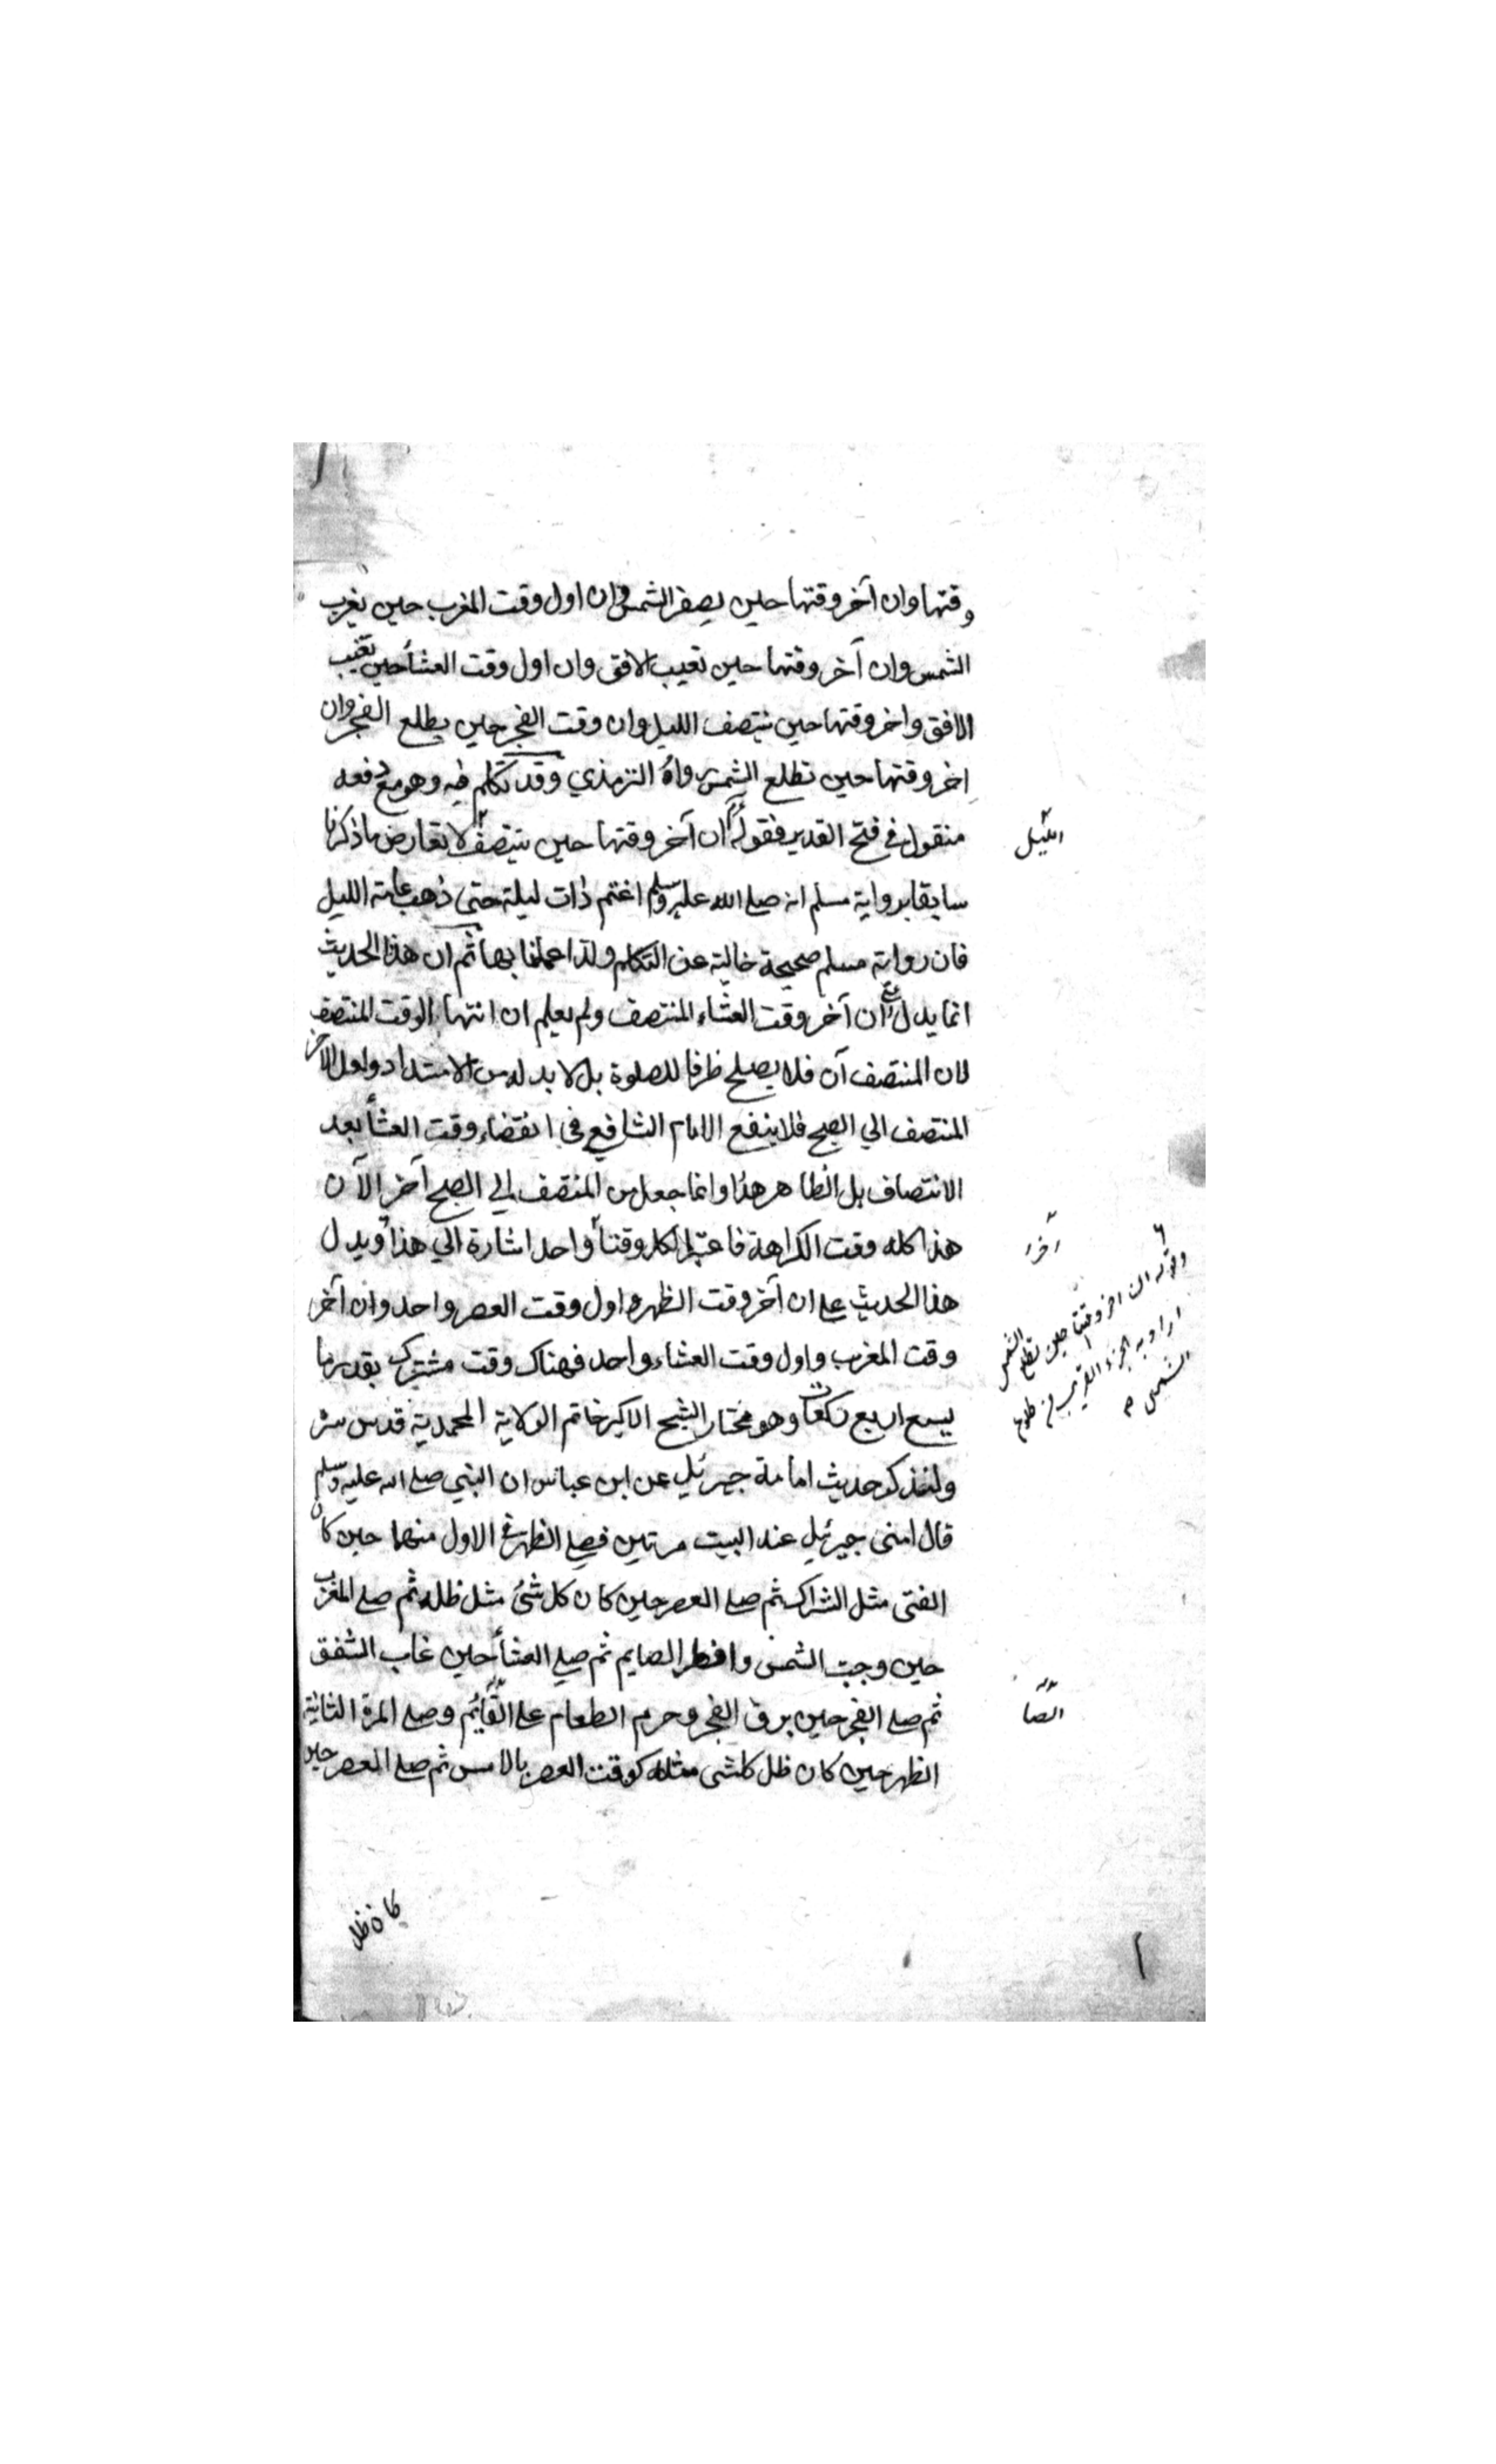 وقتها وان آخر وقتها حين يصفر الشمس وان اول وقت المغرب حين يغرب
الشمس وان آخر وقتها حين تغيب الافق وان اول وقت العشأ حين تغيب
الافق واخر وقتها حين ينتصف الليل وان وقت الفجر حين يطلع الفجر وان
اخر وقتها حين تطلع الشمس رواه الترمذي وقد تكلم فيه وهو مع دفعه
منقول في فتح القدير فقوله ان آخر وقتها حين ينتصف لا تعارض ما ذكرنا
الليل
سابقا برواية مسلم انه صلے الله عليه وسلم اعتم ذات ليلة حتى ذهب عامة الليل
فان رواية مسلم صحيحة خالية عن التكلم ولذا عملنا بها ثم ان هذا الحديث
انما يدل على ان آخر وقت العشاء المنتصف ولم يعلم ان انتهاء الوقت المنتصف
لان المنتصف آن فلا يصلح ظرفا للصلوة بل لا بد له من الامتداد ولعل الآخر
المنتصف الي الصبح فلا ينفع الامام الشافعي في انقضاء وقت العشأ بعد
الانتصاف بل الظاهر هذا وانما جعل من المنتصف الى الصبح آخر الآن
هذا كله وقت الكراهة فاعتبر الكل وقتا واحدا اشارة الي هذا ويدل
آخرا
هذا الحديث على ان آخر وقت الظهر واول وقت العصر واحد وان آخر
وقت المغرب واول وقت العشاء واحد فهناك وقت مشترك بقدر ما
يسع اربع ركعات وهو مختار الشيخ الاكبر خاتم الولاية المحمدية قدس سره
وقوله ان اخر وقتها حين تطلع الشمس
اراد به الجزء القريب من طلوع
الشمس
ولنذكر حديث امامة جبرئيل عن ابن عباس ان النبي صلے الله عليه وسلم
قال امنى جبرئيل عند البيت مرتين فصلے الظهر في الاول منهما حين كان
الفئ مثل الشراك ثم صلے العصر حين كان كل شئ مثل ظله ثم صلے المغرب
حين وجبت الشمس وافطر الصايم ثم صلے العشأ حين غاب الشفق
ثم صلے الفجر حين برق الفجر وحرم الطعام على القايم وصلے المرة الثانية
الصا
الظهر حين كان ظل كلشى مثله كوقت العصر بالامس ثم صلے العصر حين
كان ظل